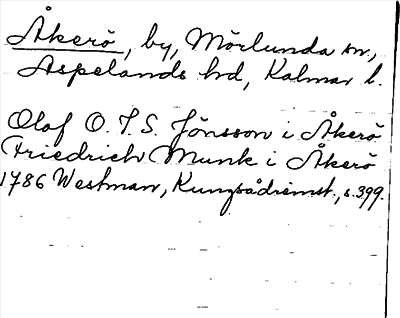 Åkerö, by, Mörlunda sn,
Aspelands hd, Kalmar l.
Olof O. I. S. Jönsson i Åkerö
Friedrich Munk i Åkerö
1786 Westman, Kungsådremst., s. 399.